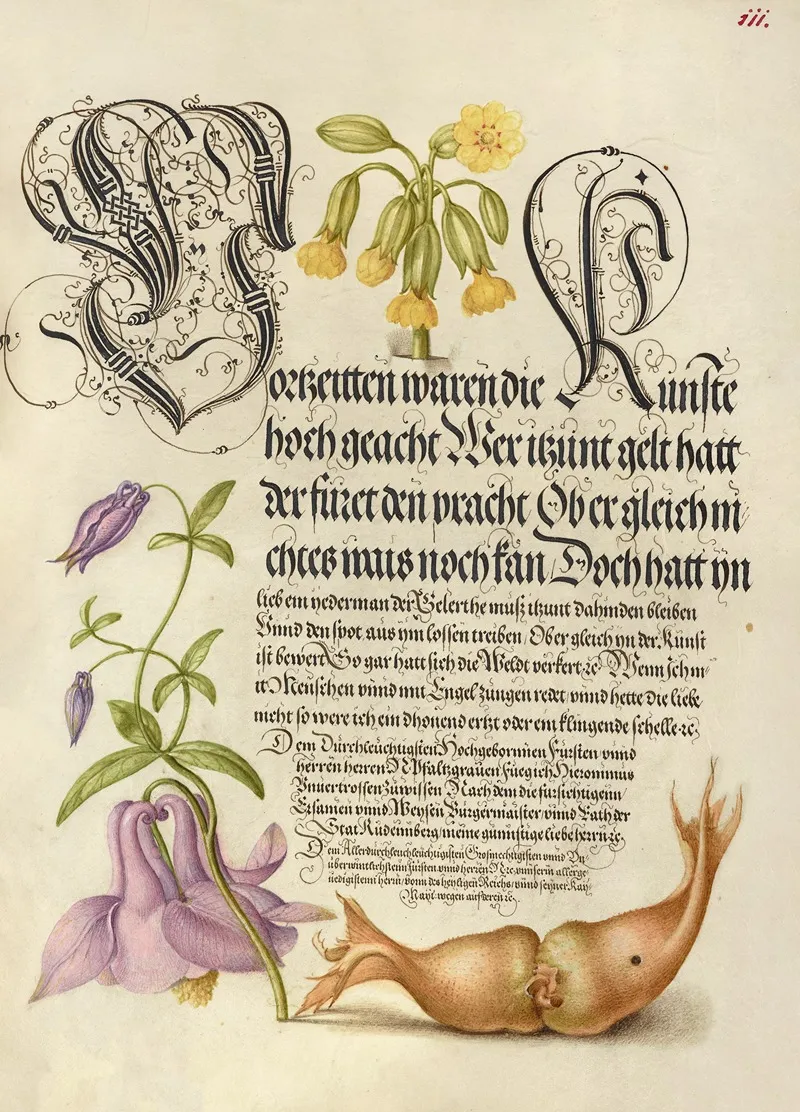 iii.
Vorzeitten waren die Kunste
hoch geacht Wer itzunt gelt hatt
der füret den pracht Ob er gleich ni-
chtes wais noch kan Doch hatt yn
lieb ein yederman der Gelerthe muß itzunt dahinden bleiben
Vnnd den spot aus ym lossen treiben Ob er gleich yn der Kunst
ist bewert So gar hatt sich die Weldt verkert ꝛc Wenn Ich m-
it Menschen vnnd mit Engel zungen redet vnnd hette die liebe
nicht so were ich ein dhonend ertzt oder ein klingende schelle ꝛc
Dem Durchleuchtigsten Hochgebornnen Fursten vnnd
herren herren N Pfaltzgrauen
Vnuertrossen zuwissen Nach dem die fursichtigenn
Ersamen vnnd Weysen Burgermaister vnnd Rath der
Stat Nüremberg meine gunnstige liebe herrn ꝛc
Dem Allerdurchleuchtigisten Grosmechtigisten vnnd Vn-
uberwintlichstenn fursten vnnd herren N ꝛc vnnserm allerge-
nedigistenn herrn vonn des heyligen Reichs vnnd seyner Kay-
May: wegen